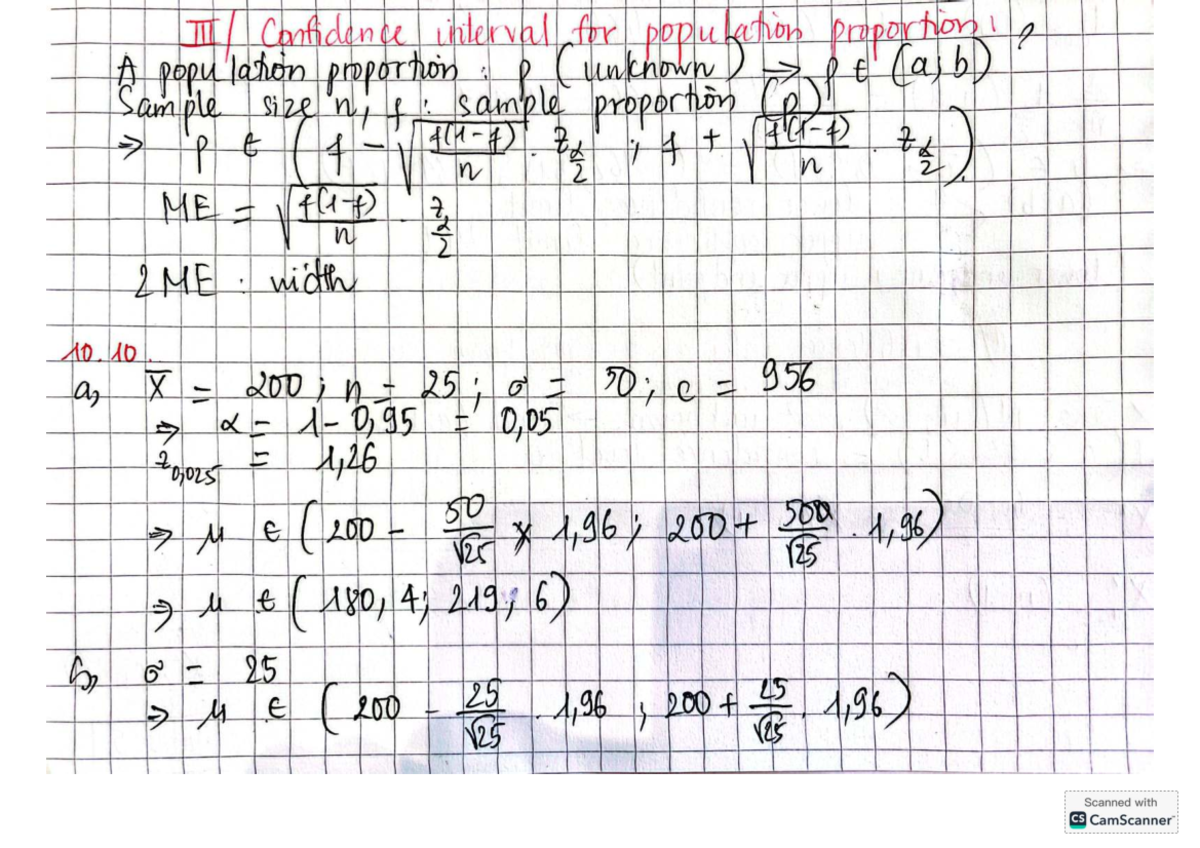 III/ Confidence interval for population proportion: ?
A population proportion : p (unknown) ⇒ p ∈ (a; b)
Sample size n, f : sample proportion (p̂)
⇒ p ∈ ( f - √(f(1-f)/n) . z_α/2 ; f + √(f(1-f)/n) . z_α/2 ).
ME = √(f(1-f)/n) . z_α/2
2ME : width
10.10.
a, X̄ = 200 ; n = 25 ; σ = 50 ; c = 956
⇒ α = 1 - 0,95 = 0,05
z_0,025 = 1,26
⇒ μ ∈ ( 200 - 50/√25 × 1,96 ; 200 + 500/√25 . 1,96 )
⇒ μ ∈ ( 180,4 ; 219, 6 )
b, σ = 25
⇒ μ ∈ ( 200 - 25/√25 . 1,96 ; 200 + 25/√25 . 1,96 )
Scanned with
CS CamScanner